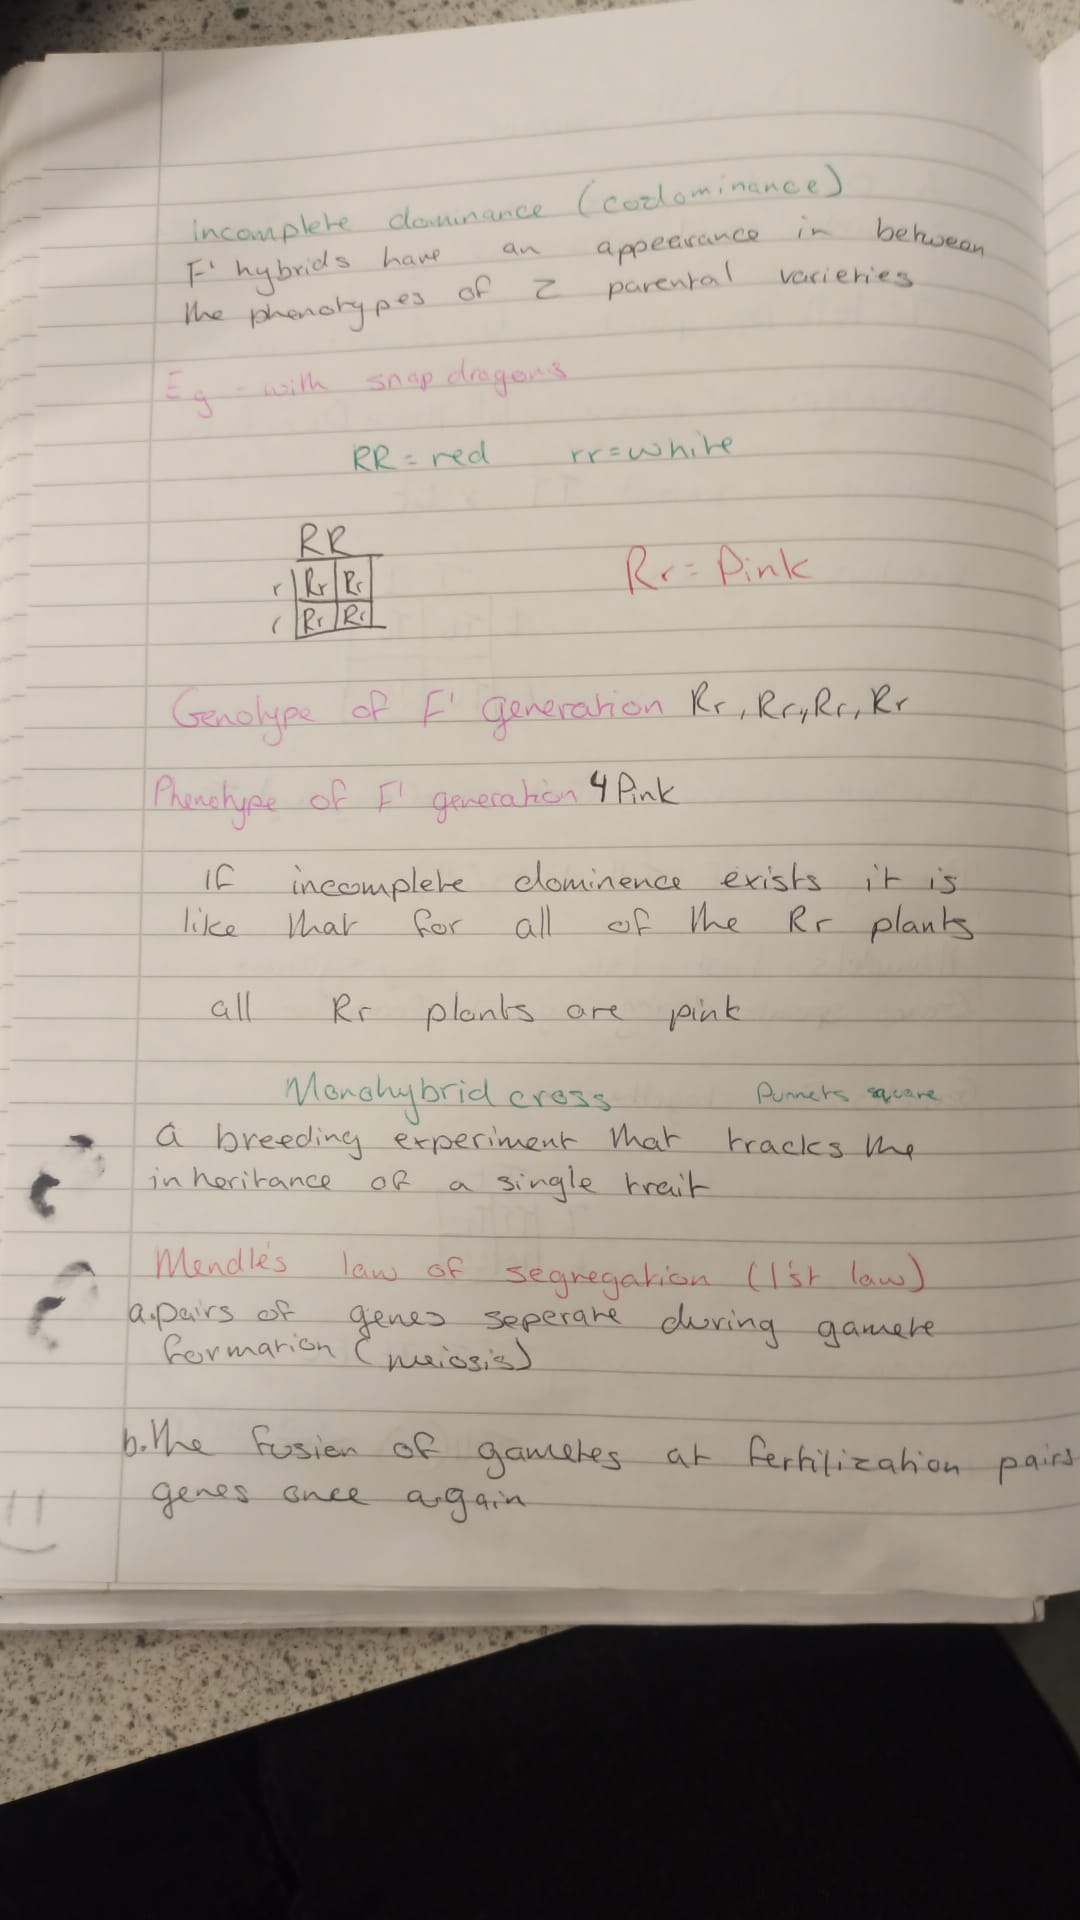 incomplete dominance (codominance)
F' hybrids have an appearance in between
the phenotypes of 2 parental varieties
Eg - with snapdragons
RR = red rr = white
RR
r Rr Rr
r Rr Rr
Rr = Pink
Genotype of F' generation Rr, Rr, Rr, Rr
Phenotype of F' generation 4 Pink
If incomplete dominence exists it is
like that for all of the Rr plants
all Rr plants are pink
Monohybrid cross Punnets square
a breeding experiment that tracks the
inheritance of a single trait
Mendle's law of segregation (1'st law)
a. pairs of genes seperate during gamete
formation (meiosis)
b. the fusion of gametes at fertilization pairs
genes once again